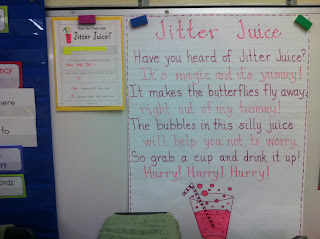 Jitter Juice
Have you heard of Jitter Juice?
It is magic and it's yummy!
It makes the butterflies fly away,
right out of my tummy!
The bubbles in this silly juice
will help you not to worry.
So grab a cup and drink it up!
Hurry! Hurry! Hurry!
Jitter Juice?
here
to
ords